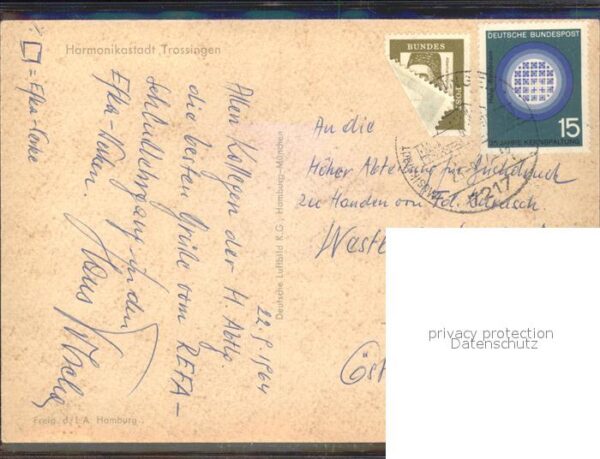 Harmonikastadt Trossingen
= Efka-Werke
22. 9. 1964
Allen Kollegen der H. Abtlg.
die besten Grüße vom REFA-
in den
Efka-Werken.
Hans
Deutsche Luftbild K.G., Hamburg-München
Freig. d. L.A. Hamburg
BUNDES
POST
DEUTSCHE BUNDESPOST
15
JAHRE KERNSPALTUNG
An die
Höher Abteilung für
zu Handen von Fd.
West
Öst
privacy protection
Datenschutz